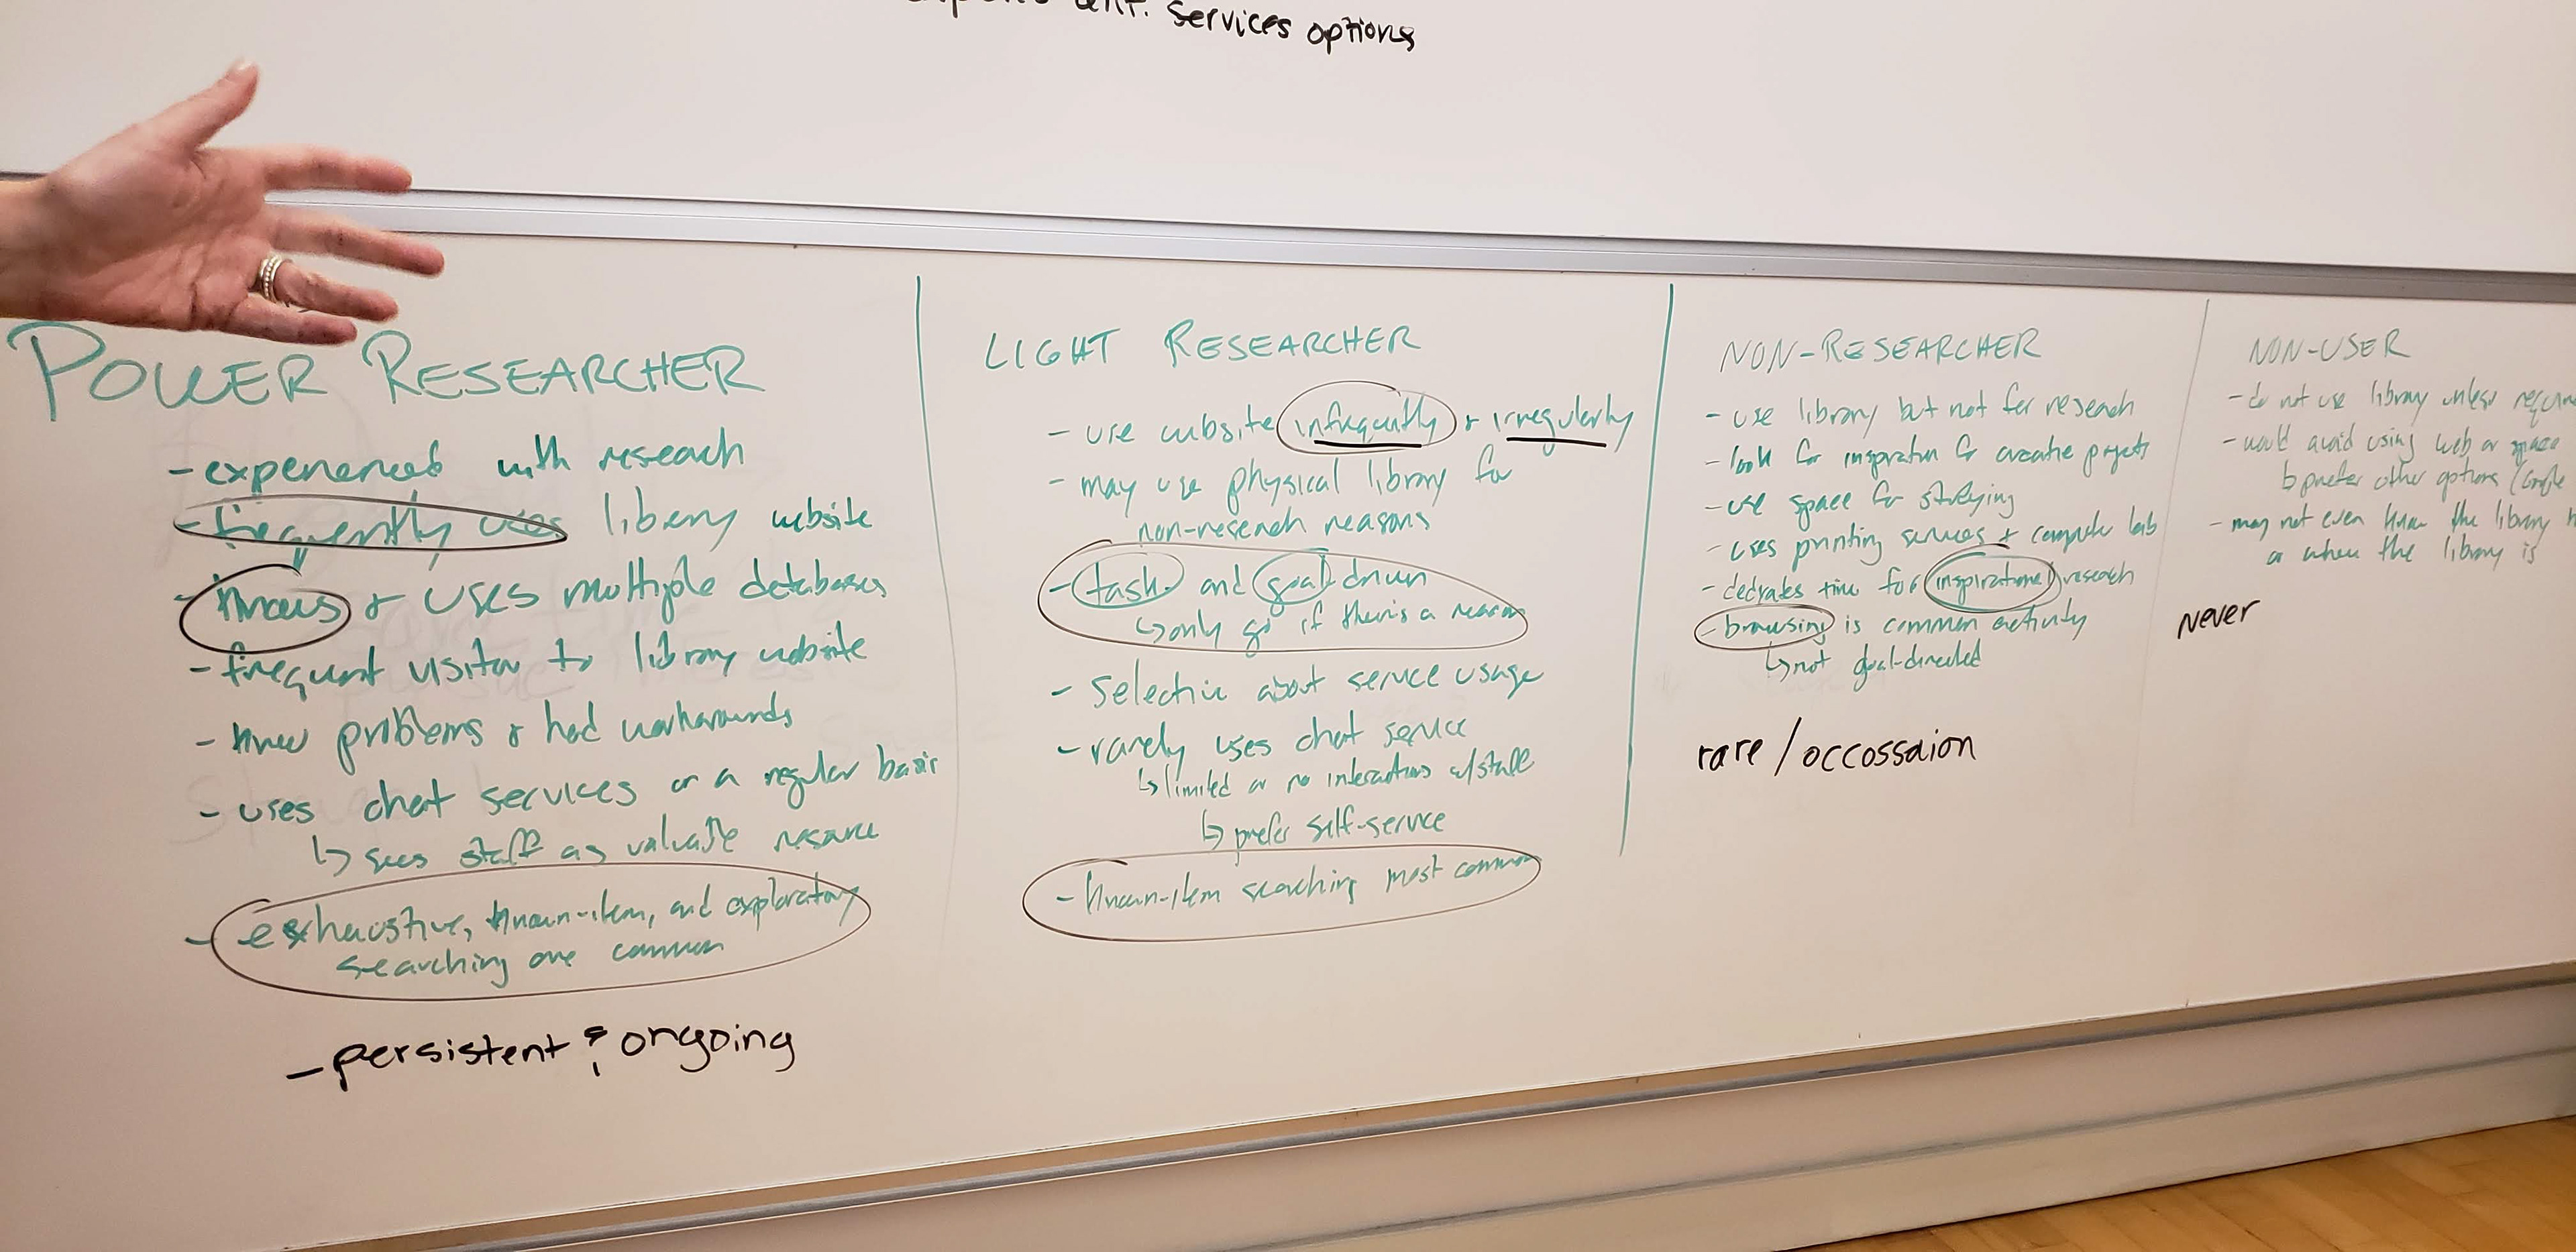 services options
POWER RESEARCHER
- experienced with reseach
- frequently uses library website
- knows & uses multiple databases
- frequent visitor to library website
- knew problems & had workarounds
- uses chat services on a regular basis
↳ sees staff as valuable resource
- exhaustive, known-item, and exploratory
searching are common
- persistent & ongoing
LIGHT RESEARCHER
- use website infrequently & irregularly
- may use physical library for
non-reseach reasons
- task and goal driven
↳ only go if there's a reason
- selective about service usage
- rarely uses chat service
↳ limited or no interactions w/staff
↳ prefer self-service
- known-item searching most common
NON-RESEARCHER
- use library but not for reseach
- look for inspiration for creative projects
- use space for studying
- uses printing services + computer lab
- dedicates time for inspirational reseach
- browsing is common activity
↳ not goal-directed
rare / occossaion
NON-USER
- do not use library unless
- would avoid using web or space
↳ prefer other options (Google
- may not even know the library
or where the library is
never